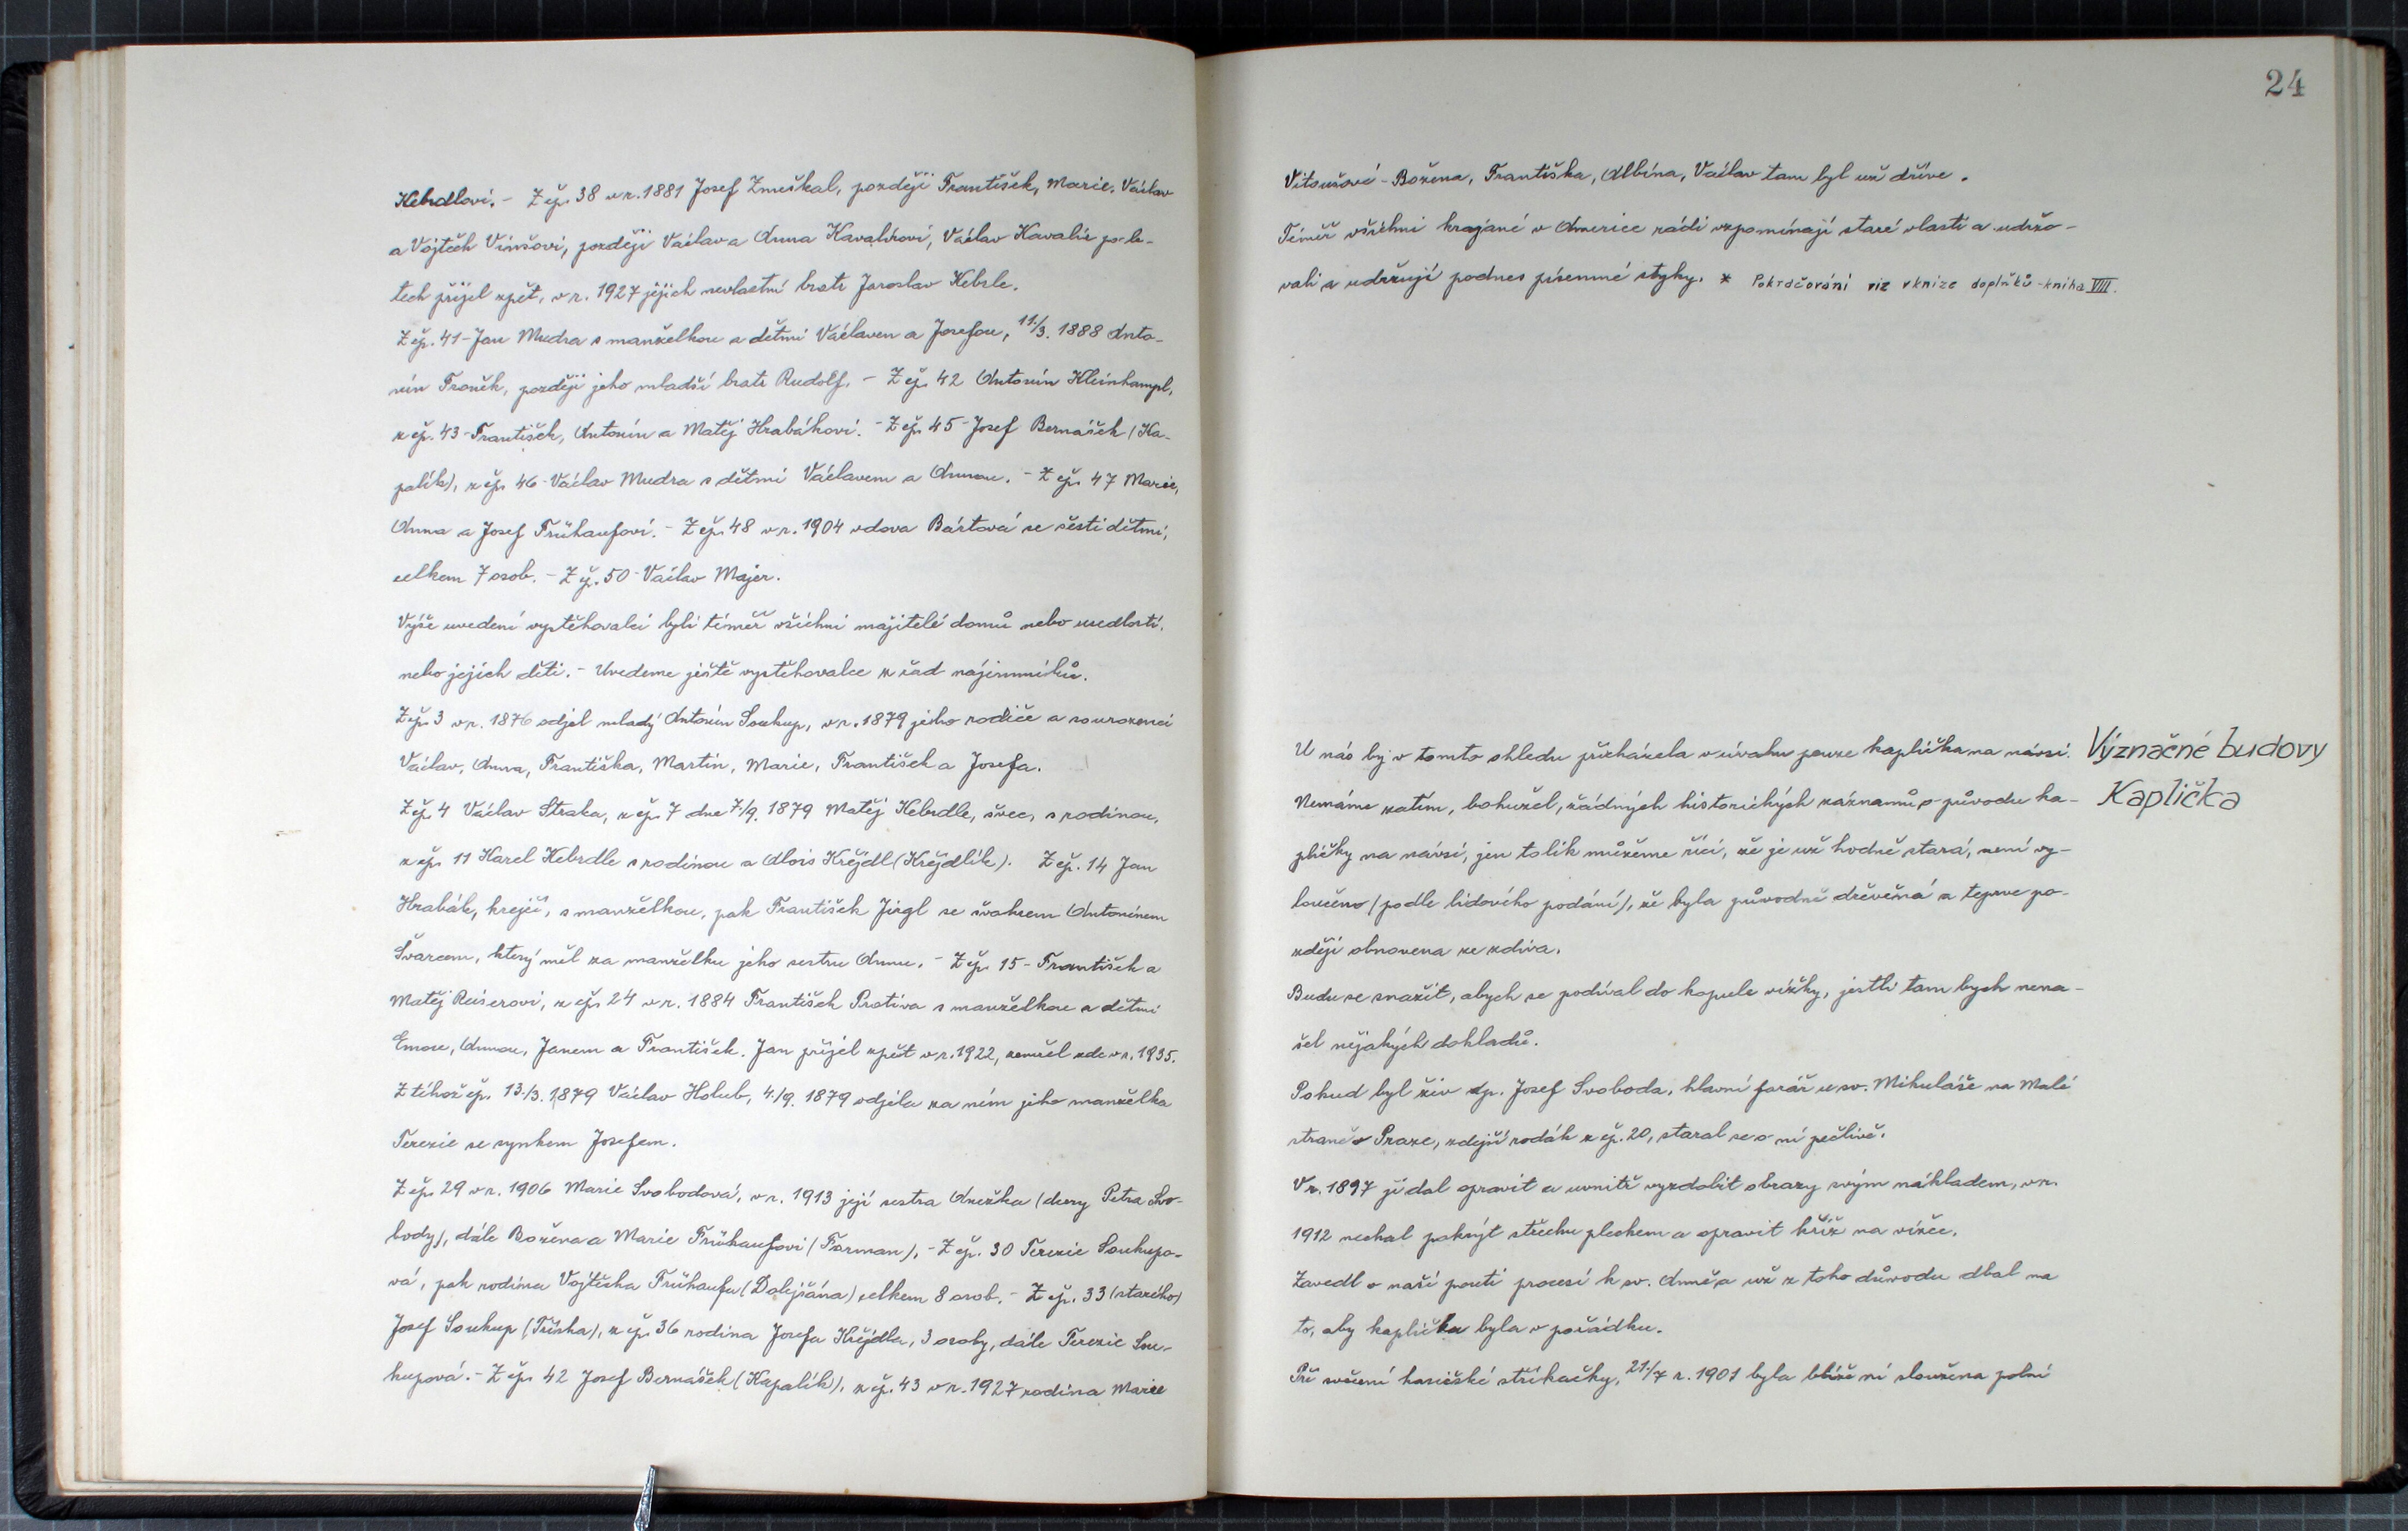 Kebrdlovi. - Z čp. 38 v r. 1881 Josef Zmeškal, později František, Marie, Václav
a Vojtěch Vinšovi, později Václav a Anna Kavalírovi, Václav Kavalír po le-
tech přijel zpět, v r. 1927 jejich nevlastní bratr Jaroslav Kebrle.
Z čp. 41 - Jan Mudra s manželkou a dětmi Václavem a Josefou, 11./3. 1888 Anto-
nín Froněk, později jeho mladší bratr Rudolf. - Z čp. 42 Antonín Kleinhampl,
z čp. 43 - František, Antonín a Matěj Hrabákovi. - Z čp. 45 - Josef Bernášek (Ka-
palík), z čp. 46 - Václav Mudra s dětmi Václavem a Annou. - Z čp. 47 Marie,
Anna a Josef Frühaufovi. - Z čp. 48 v r. 1904 vdova Bártová se šesti dětmi,
celkem 7 osob. - Z čp. 50 - Václav Majer.
Výše uvedení vystěhovalci byli téměř všichni majitelé domů nebo usedlostí,
nebo jejich děti. - Uvedeme ještě vystěhovalce z řad nájemníků.
Z čp. 3 v r. 1876 odjel mladý Antonín Soukup, v r. 1879 jeho rodiče a sourozenci
Václav, Anna, Františka, Martin, Marie, František a Josefa.
Z čp. 4 Václav Straka, z čp. 7 dne 7./9. 1879 Matěj Kebrdle, švec, s rodinou,
z čp. 11 Karel Kebrdle s rodinou a Alois Krejdl (Krejdlík). Z čp. 14 Jan
Hrabák, krejčí, s manželkou, pak František Jirgl se švakrem Antonínem
Švarcem, který měl za manželku jeho sestru Annu. - Z čp. 15 - František a
Matěj Reiserovi, z čp. 24 v r. 1884 František Protiva s manželkou a dětmi
Emou, Annou, Janem a František. Jan přijel zpět v r. 1922, zemřel zde v r. 1935.
Z téhož čp. 13./3. 1879 Václav Holub, 4./9. 1879 odjela za ním jeho manželka
Terezie se synkem Josefem.
Z čp. 29 v r. 1906 Marie Svobodová, v r. 1913 její sestra Anežka (dcery Petra Svo-
body), dále Božena a Marie Frühaufovi (Forman), - Z čp. 30 Terezie Soukupo-
vá, pak rodina Vojtěcha Frühaufa (Dolejšána) celkem 8 osob. - Z čp. 33 (starého)
Josef Soukup (Frísha), z čp. 36 rodina Josefa Křejdla, 3 osoby, dále Terezie Sou-
kupová. - Z čp. 42 Josef Bernášek (Kapalík), z čp. 43 v r. 1927 rodina Marie
24
Vitoušové - Božena, Františka, Albína, Václav tam byl už dříve.
Téměř všichni krajané v Americe rádi vzpomínají staré vlasti a udržo-
vali a udržují podnes písemné styky. * Pokračování viz v knize doplňků - kniha VIII.
Význačné budovy
Kaplička
U nás by v tomto ohledu přicházela v úvahu pouze kaplička na návsi.
Nemáme zatím, bohužel, žádných historických záznamů o původu ka-
pličky na návsi, jen tolik můžeme říci, že je už hodně stará, není vy-
loučeno (podle lidového podání), že byla původně dřevěná a teprve po-
zději obnovena ze zdiva.
Budu se snažit, abych se podíval do kopule vížky, jestli tam bych nena-
šel nějakých dokladů.
Pokud byl živ dp. Josef Svoboda, hlavní farář u sv. Mikuláše na Malé
straně v Praze, zdejší rodák z čp. 20, staral se o ni pečlivě.
V r. 1897 ji dal opravit a uvnitř vyzdobit obrazy svým nákladem, v r.
1912 nechal pokrýt střechu plechem a opravit kříž na vížce.
Zavedl o naší pouti procesí k sv. Anně a už z toho důvodu dbal na
to, aby kaplička byla v pořádku.
Při svěcení hasičské stříkačky, 21./7 r. 1901 byla blíže ní sloužena polní